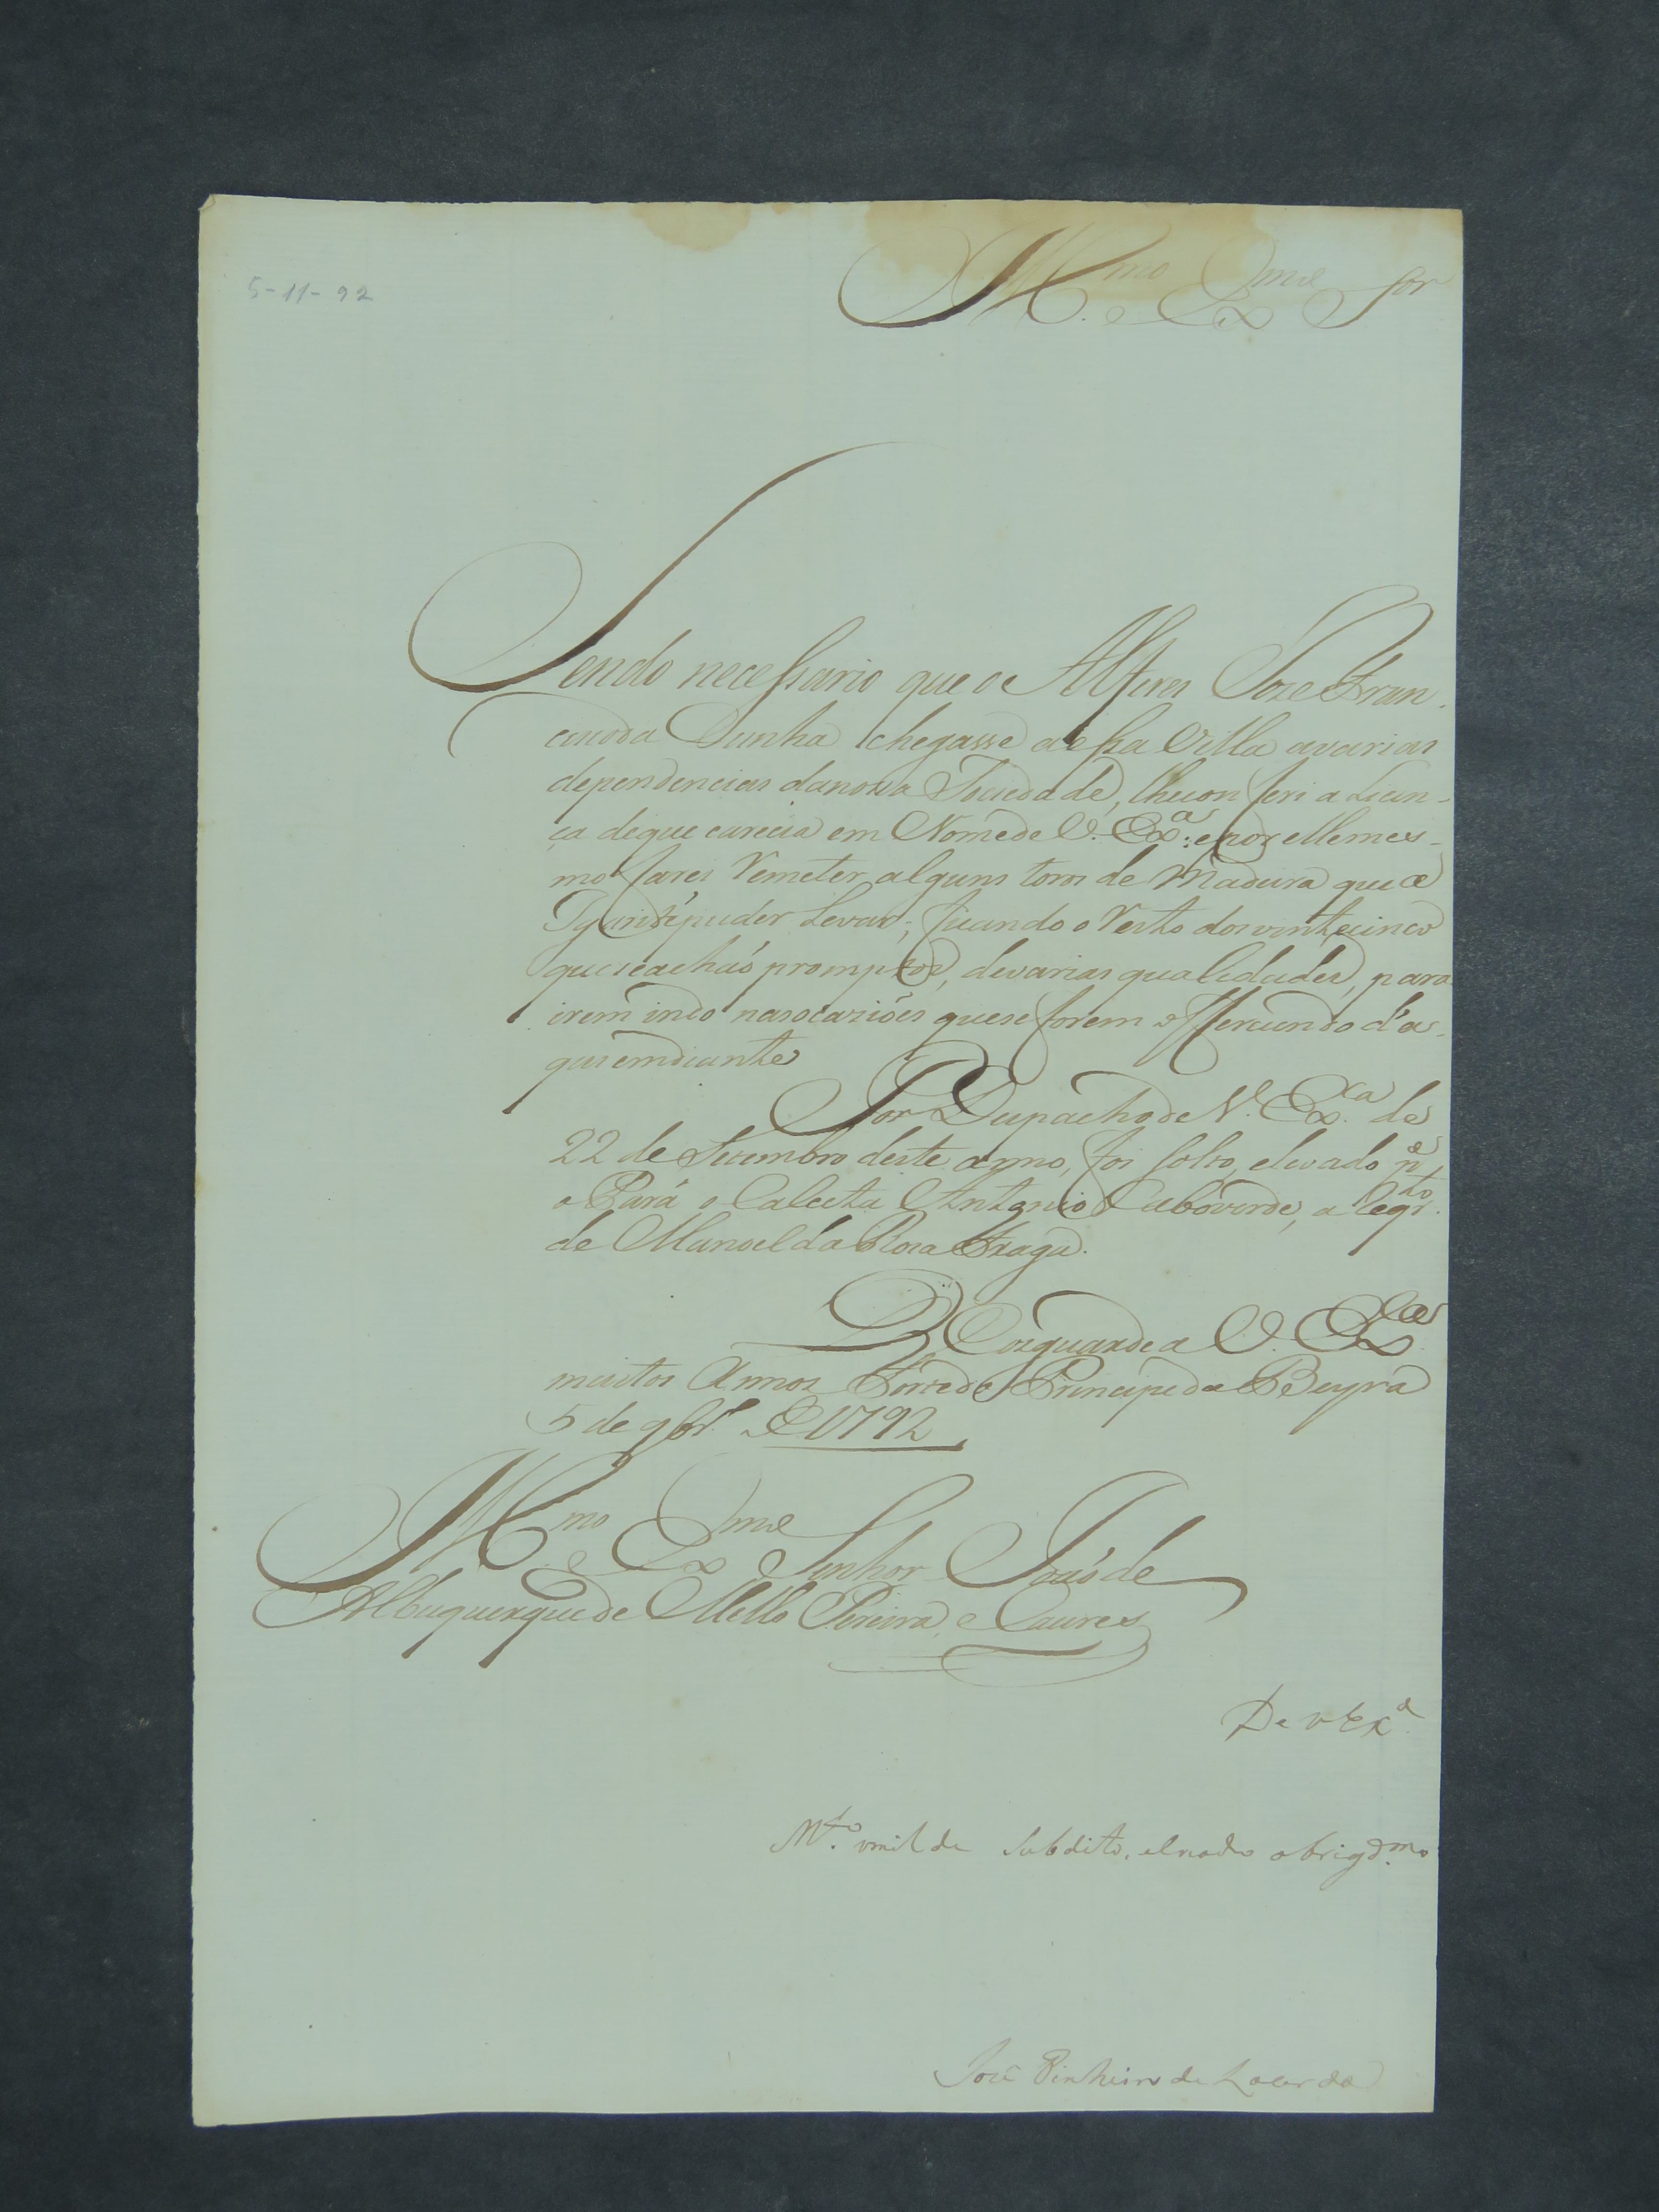 5-11-92
Ill.mo e Ex.mo Sor
Sendo necessario que o Alferes Joze Fran-
cisco da Cunha chegasse a essa Villa a varias
dependencias da nossa Sociedade, lhe conferi a Licen-
ça de que carecia em Nome de V. Ex.a: e por elle mes-
mo farei remeter alguns toros de Madura que a
Iguarité puder Levar; ficando o resto dos vinte e cinco
que se achaõ promptos, de varias qualidades, para
irem indo nas ocaziões que se forem offerecendo d'a-
qui em diante
Por Despacho de V. Ex.ca de
22 de Setembro deste anno, foi solto, e levado p.a
o Pará o Calceta Antonio Caboverde, a requr.to
de Manoel da Roza Fraga.
D.s guarde a V. Ex.ca
muitos Annos Forte do Principe da Beyra
5 de 9br.o de 1792
Ill.mo e Ex.mo Senhor Joaõ de
Albuquerque de Mello Pereira, e Caceres
De V Ex.a
M.to umilde Subdito, e criado obrigd.mo
José Pinheiro de Lacerda